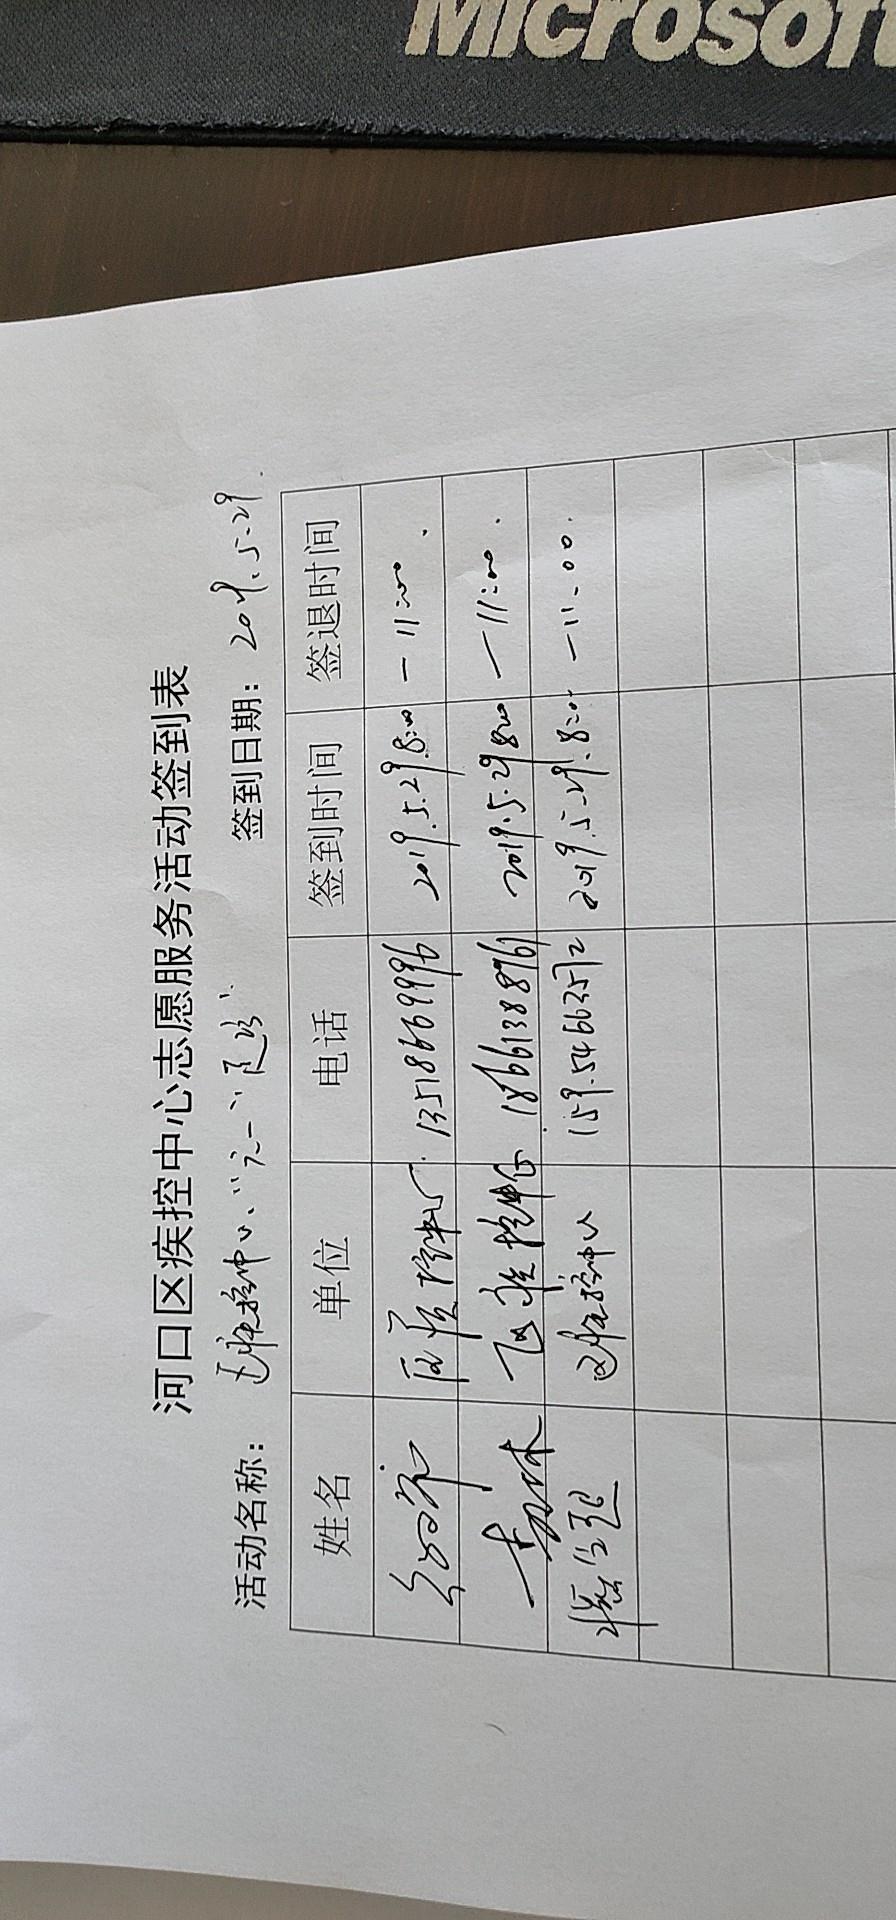 Microsoft
河口区疾控中心志愿服务活动签到表
活动名称： 疾控中心、"六一" 签到日期：2019.5.29
姓名 单位 电话 签到时间 签退时间
区疾控中心 13518669996 2019.5.29 8:00 —11:00
区疾控中心 18661388961 2019.5.29 8:00 —11:00.
区疾控中心 159.54663572 2019.5.29.8:00 —11:00.